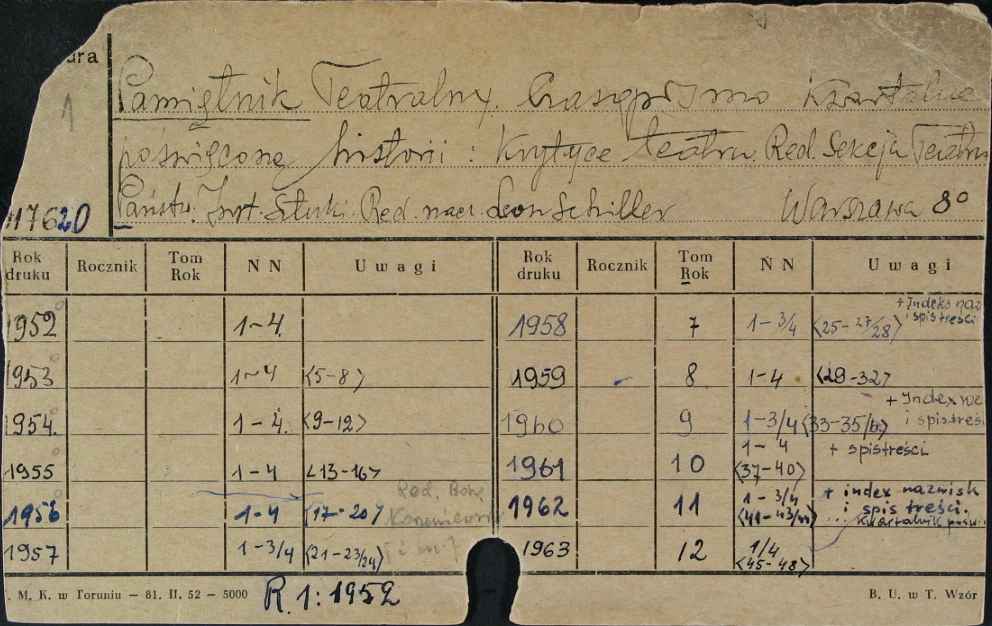 ura
1
Pamiętnik Teatralny. Czasopismo kwartalne
poświęcone historii i krytyce teatru. Red. Sekcja Teatru
Państw. Inst. Sztuki. Red. nacz. Leon Schiller Warszawa 8°
17620
Rok druku Rocznik Tom Rok N N Uwagi Rok druku Rocznik Tom Rok N N Uwagi
1952 1-4. 1958 7 1-3/4 <25-27/28> + Indeks naz i spis treści
1953 1-4 <5-8> 1959 8 1-4 <29-32>
1954. 1-4. <9-12> 1960 9 1-3/4 <33-35/6> + Index i spis treści
1955 1-4 <13-16> 1961 10 1-4 <37-40> + spis treści
1956 1-4 <17-20> Red. 1962 11 1-3/4 <41-43/44> + index nazwisk i spis treści. Kwartalnik
1957 1-3/4 <21-23/24> 1963 12 1/4 <45-48>
. M. K. w Toruniu — 81. II. 52 — 5000 R. 1: 1952 B. U. w T. Wzór